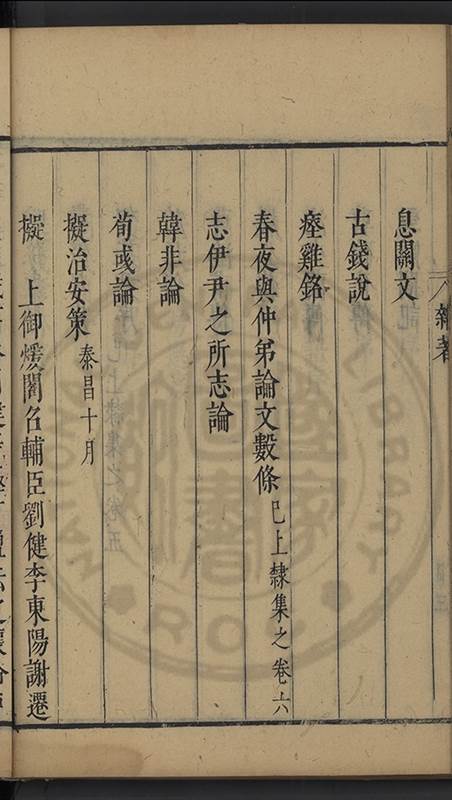 雜著
息關文
古錢說
瘞雞銘
春夜與仲弟論文數條已上隸集之卷六
志伊尹之所志論
韓非論
荀彧論
擬治安策泰昌十月
擬 上御煖閣召輔臣劉健李東陽謝遷